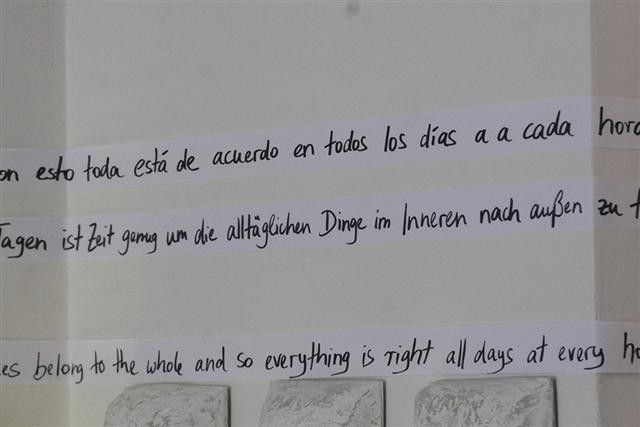 on esto toda está de acuerdo en todos los días a a cada hora
Tagen ist Zeit genug um die alltäglichen Dinge im Inneren nach außen zu
es belong to the whole and so everything is right all days at every ho